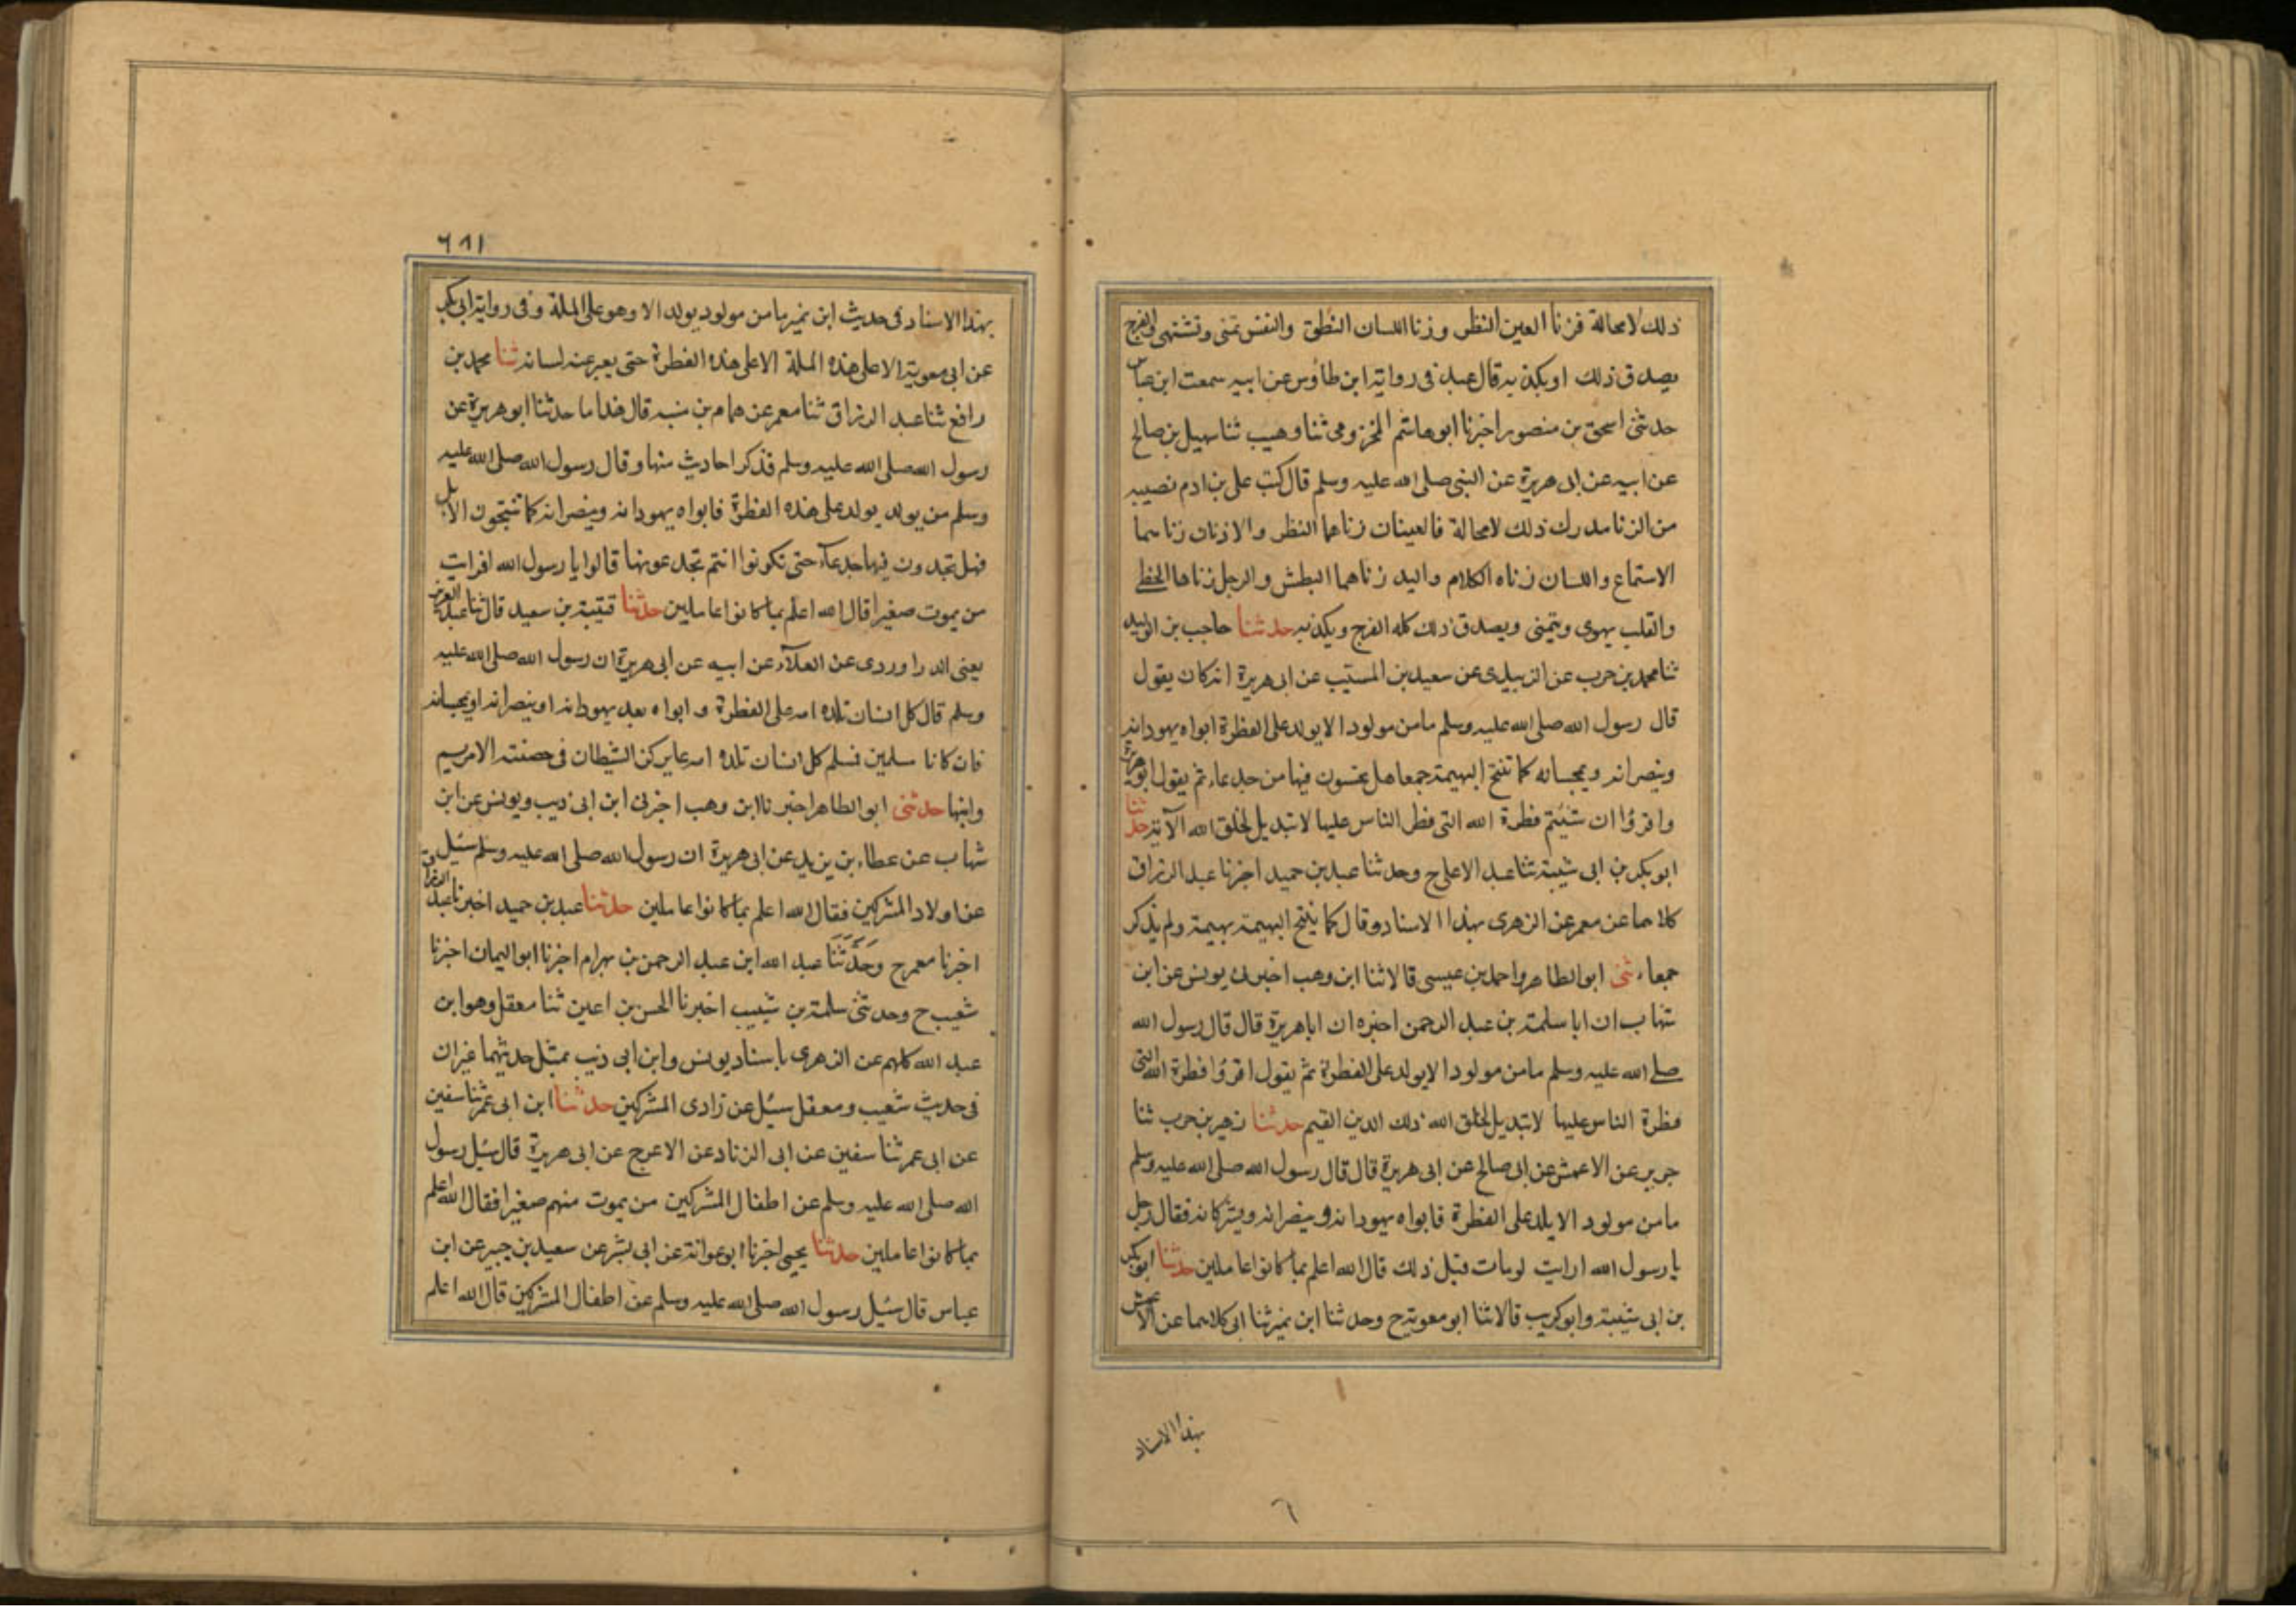 ذلك لامحالة فزنا العين النظر وزنا اللسان النطق والنفس تمنى وتشتهى والفرج
يصدق ذلك او يكذبه قال عبد فى رواية ابن طاؤس عن ابيه سمعت ابن عباس
حدثنى اسحق بن منصور اخبرنا ابو هاشم المخزومى ثنا وهيب ثنا سهيل بن صالح
عن ابيه عن ابى هريرة عن النبى صلى الله عليه وسلم قال كتب على بن ادم نصيبه
من الزنا مدرك ذلك لامحالة فالعينان زناهما النظر والاذنان زناهما
الاستماع واللسان زناه الكلام واليد زناهما البطش والرجل زناها الخطى
والقلب يهوى ويتمنى ويصدق ذلك كله الفرج ويكذبه حدثنا حاجب بن الوليد
ثنا محمد بن حرب عن الزبيدى عن سعيد بن المسيب عن ابى هريرة انه كان يقول
قال رسول الله صلى الله عليه وسلم ما من مولود الا يولد على الفطرة ابواه يهودانه
وينصرانه ويمجسانه كما تنتج البهيمة جمعا هل تحسون فيها من جدعاء ثم يقول ابو هريرة
واقرؤا ان شئتم فطرة الله التى فطر الناس عليها لا تبديل لخلق الله الآية حدثنا
ابو بكر بن ابى شيبة ثنا عبد الاعلى ح وحدثنا عبد بن حميد اخبرنا عبد الرزاق
كلاهما عن معمر عن الزهرى بهذا الاسناد وقال كما ينتج البهيمة بهيمة ولم يذكر
جمعاء ثنى ابو الطاهر واحمد بن عيسى قالا ثنا ابن وهب اخبرنى يونس عن ابن
شهاب ان ابا سلمة بن عبد الرحمن اخبره ان ابا هريرة قال قال رسول الله
صلى الله عليه وسلم ما من مولود الا يولد على الفطرة ثم يقول اقرؤا فطرة الله التى
فطرة الناس عليها لا تبديل لخلق الله ذلك الدين القيم حدثنا زهير بن حرب ثنا
جرير عن الاعمش عن ابى صالح عن ابى هريرة قال قال رسول الله صلى الله عليه وسلم
ما من مولود الا يلد على الفطرة فابواه يهودانه وينصرانه ويشركانه فقال رجل
يا رسول الله ارايت لو مات قبل ذلك قال الله اعلم بما كانوا عاملين حدثنا ابو بكر
بن ابى شيبة وابو كريب قالا ثنا ابو معوية ح وحدثنا ابن نمير ثنا ابى كلاهما عن الاعمش
بهذا الاسناد
٦٨١
بهذا الاسناد فى حديث ابن نمير ما من مولود يولد الا وهو على الملة وفى رواية ابى بكر
عن ابى معوية الا على هذه الملة الا على هذه الفطرة حتى يعبر عنه لسانه ثنا محمد بن
رافع ثنا عبد الرزاق ثنا معمر عن همام بن منبه قال هذا ما حدثنا ابو هريرة عن
رسول الله صلى الله عليه وسلم فذكر احاديث منها وقال رسول الله صلى الله عليه
وسلم من يولد يولد على هذه الفطرة فابواه يهودانه وينصرانه كما تنتجون الابل
فهل تجدون فيها جدعاء حتى تكونوا انتم تجدعونها قالوا يا رسول الله افرايت
من يموت صغيرا قال الله اعلم بما كانوا عاملين حدثنا قتيبة بن سعيد قال ثنا عبد العزيز
يعنى الدراوردى عن العلاء عن ابيه عن ابى هريرة ان رسول الله صلى الله عليه
وسلم قال كل انسان تلده امه على الفطرة و ابواه بعد يهودانه او ينصرانه او يمجسانه
فان كانا مسلمين فسلم كل انسان تلده امه عليه يركن الشيطان فى حصنته الا مريم
وابنها حدثنى ابو الطاهر اخبرنا ابن وهب اخبرنى ابن ابى ذيب ويونس عن ابن
شهاب عن عطاء بن يزيد عن ابى هريرة ان رسول الله صلى الله عليه وسلم سئل
عن اولاد المشركين فقال الله اعلم بما كانوا عاملين حدثنا عبد بن حميد اخبرنا عبد الرزاق
اخبرنا معمر ح وحدثنا عبد الله ابن عبد الرحمن بن بهرام اخبرنا ابو اليمان اخبرنا
شعيب ح وحدثنى سلمة بن شبيب اخبرنا الحسن بن اعين ثنا معقل وهو ابن
عبد الله كلهم عن الزهرى باسناد يونس وابن ابى ذيب بمثل حديثهما غير ان
فى حديث شعيب ومعقل سئل عن ذرارى المشركين حدثنا ابن ابى عمر ثنا سفين
عن ابى عمر ثنا سفين عن ابى الزناد عن الاعرج عن ابى هريرة قال سئل رسول
الله صلى الله عليه وسلم عن اطفال المشركين من يموت منهم صغيرا فقال الله اعلم
بما كانوا عاملين حدثنا يحيى اخبرنا ابو عوانة عن ابى بشر عن سعيد بن جبير عن ابن
عباس قال سئل رسول الله صلى الله عليه وسلم عن اطفال المشركين قال الله اعلم